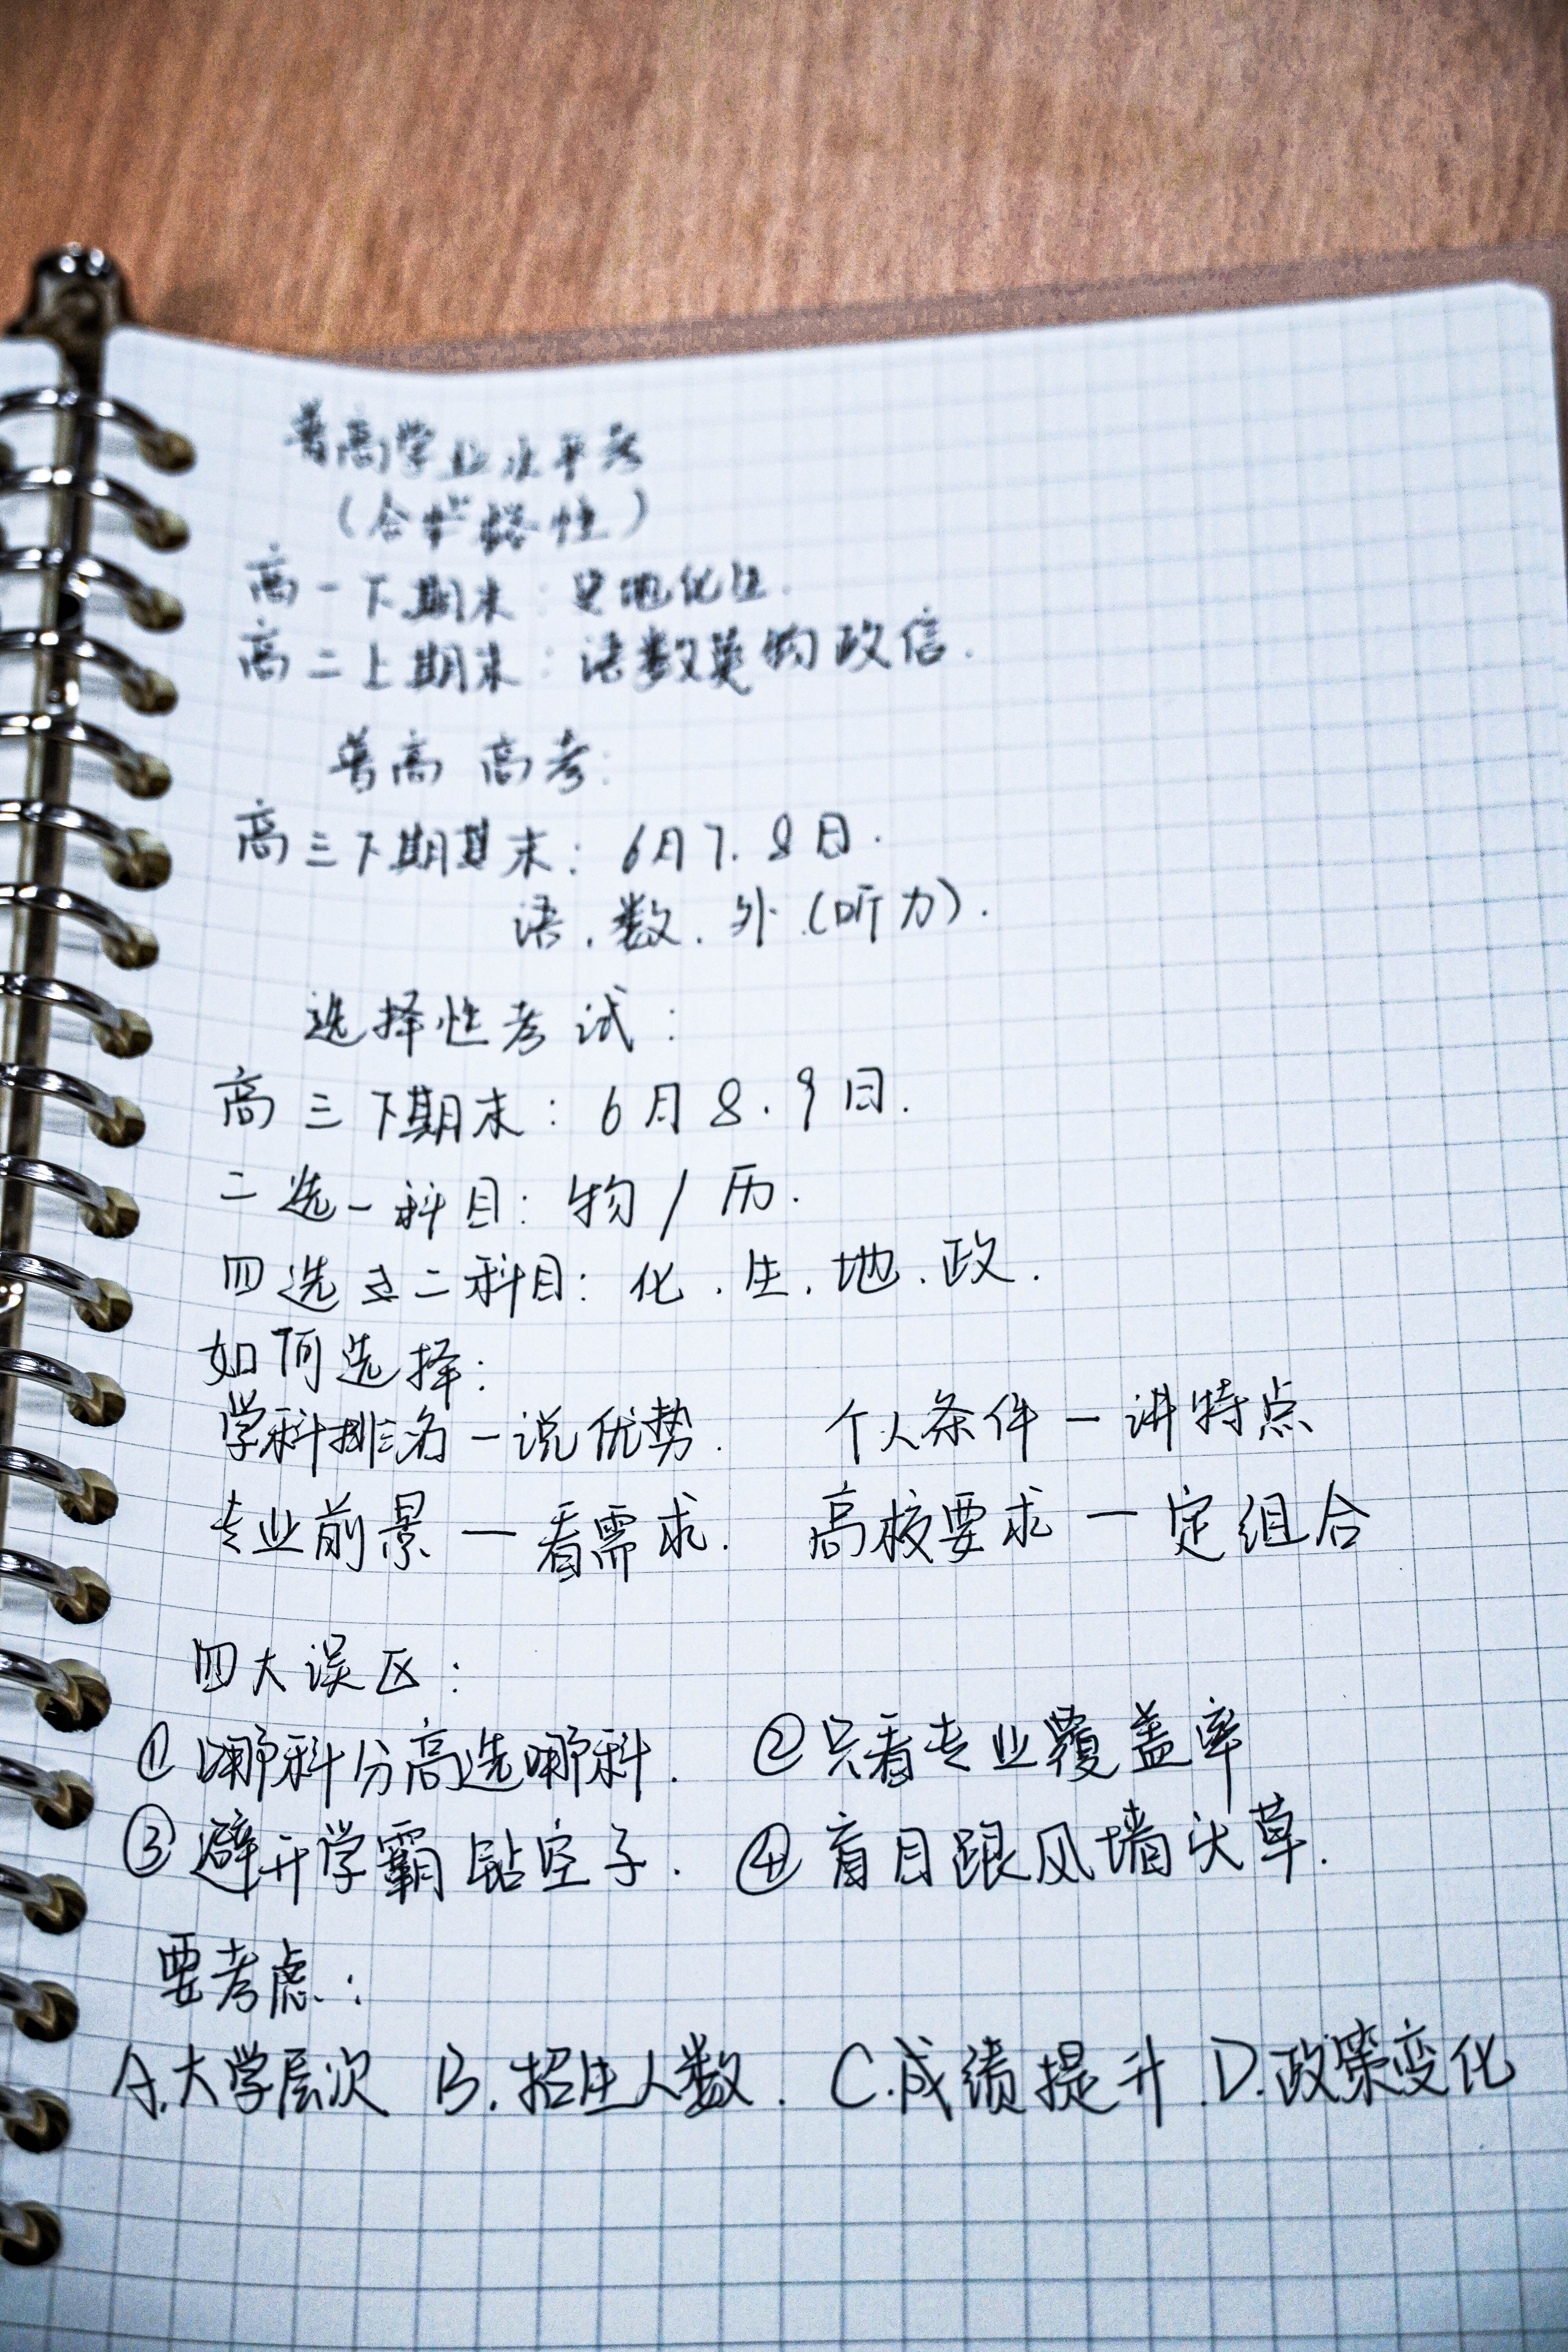 普高学业水平考
(合格性)
高一下期末：史地化生.
高二上期末：语数英物政信.
普高 高考：
高三下期末：6月7.8日.
语.数.外.(听力).
选择性考试：
高三下期末：6月8.9日.
二选一科目：物/历.
四选二科目：化.生.地.政.
如何选择：
学科排名—说优势. 个人条件—讲特点
专业前景—看需求. 高校要求—定组合
四大误区：
①哪科分高选哪科. ②只看专业覆盖率
③避开学霸钻空子. ④盲目跟风墙头草.
要考虑：
A.大学层次 B.招生人数. C.成绩提升. D.政策变化